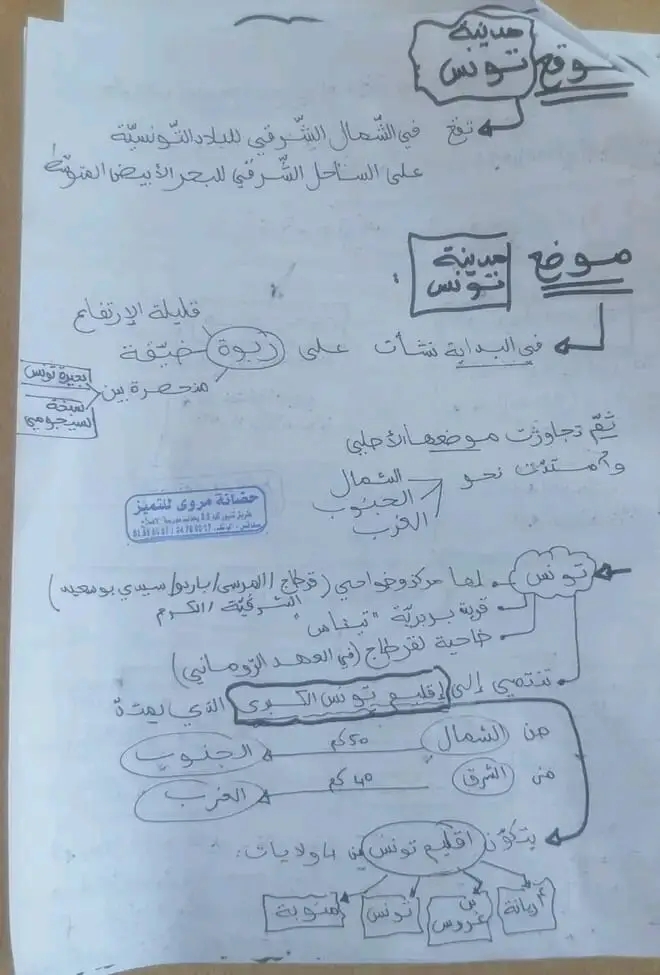 موقع مدينة تونس
تقع في الشّمال الشّرقي للبلاد التّونسيّة
على الساحل الشّرقي للبحر الأبيض المتوسّط
موضع مدينة تونس :
قليلة الإرتفاع
في البداية نشأت على ربوة ضيّقة
منحصرة بين
بحيرة تونس
سبخة
السيجومي
ثمّ تجاوزت موضعها الأصلي
وامتدّت نحو
الشمال
الجنوب
الغرب
حضانة مروى للتميز
تونس
لها مركز وضواحي (قرطاج / المرسى / باردو / سيدي بوسعيد)
الشرقيّة / الكرم
قرية بربريّة "تيناس"
ضاحية لقرطاج (في العهد الرّوماني)
تنتمي إلى إقليم تونس الكبرى الذي يمتدّ
من الشمال 50 كم الجنوب
من الشرق 40 كم الغرب
يتكوّن اقليم تونس من 4 ولايات:
أريانة
بن عروس
تونس
منوبة